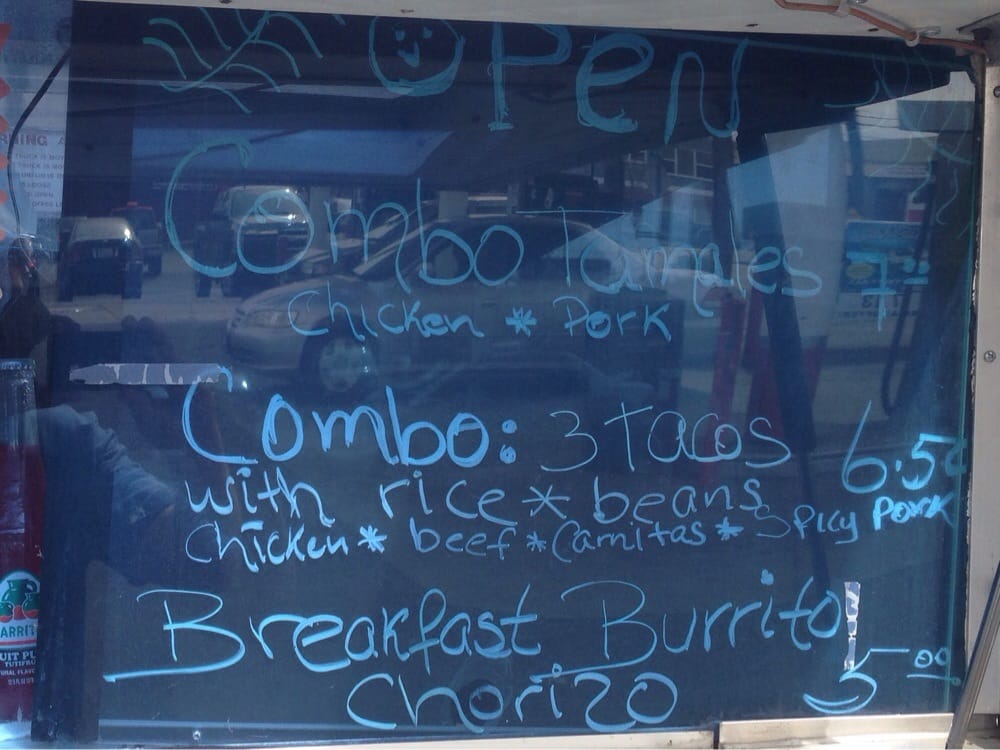 Open
Combo Tamales 7.00
Chicken * Pork
Combo: 3 Tacos 6.50
with rice * beans
Chicken * beef * Carnitas * Spicy Pork
Breakfast Burrito
Chorizo 5.00
TUTIFRU